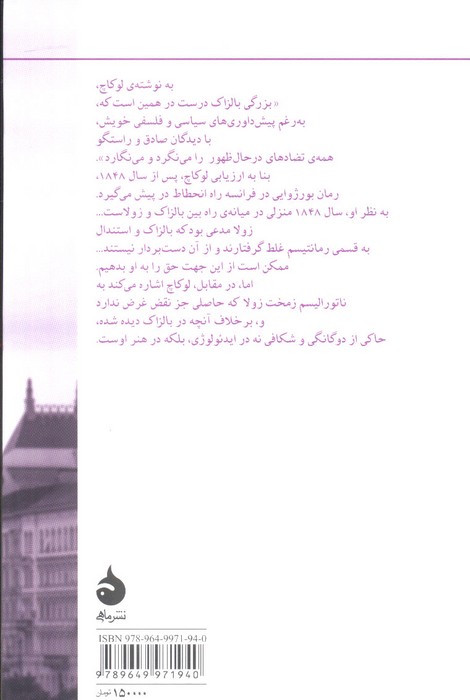 به نوشته‌ی لوکاچ،
«بزرگی بالزاک درست در همین است که،
به‌رغم پیش‌داوری‌های سیاسی و فلسفی خویش،
با دیدگان صادق و راستگو
همه‌ی تضادهای درحال‌ظهور را می‌نگرد و می‌نگارد».
بنا به ارزیابی لوکاچ، پس از سال ۱۸۴۸،
رمان بورژوایی در فرانسه راه انحطاط در پیش می‌گیرد.
به نظر او، سال ۱۸۴۸ منزلی در میانه‌ی راه بین بالزاک و زولاست...
زولا مدعی بود که بالزاک و استندال
به قسمی رمانتیسم غلط گرفتارند و از آن دست‌بردار نیستند...
ممکن است از این جهت حق را به او بدهیم.
اما، در مقابل، لوکاچ اشاره می‌کند به
ناتورالیسم زمخت زولا که حاصلی جز نقض غرض ندارد
و، برخلاف آنچه در بالزاک دیده شده،
حاکی از دوگانگی و شکافی نه در ایدئولوژی، بلکه در هنر اوست.
نشر ماهی
ISBN 978-964-9971-94-0
9 789649 971940
۱۵۰۰۰۰ تومان